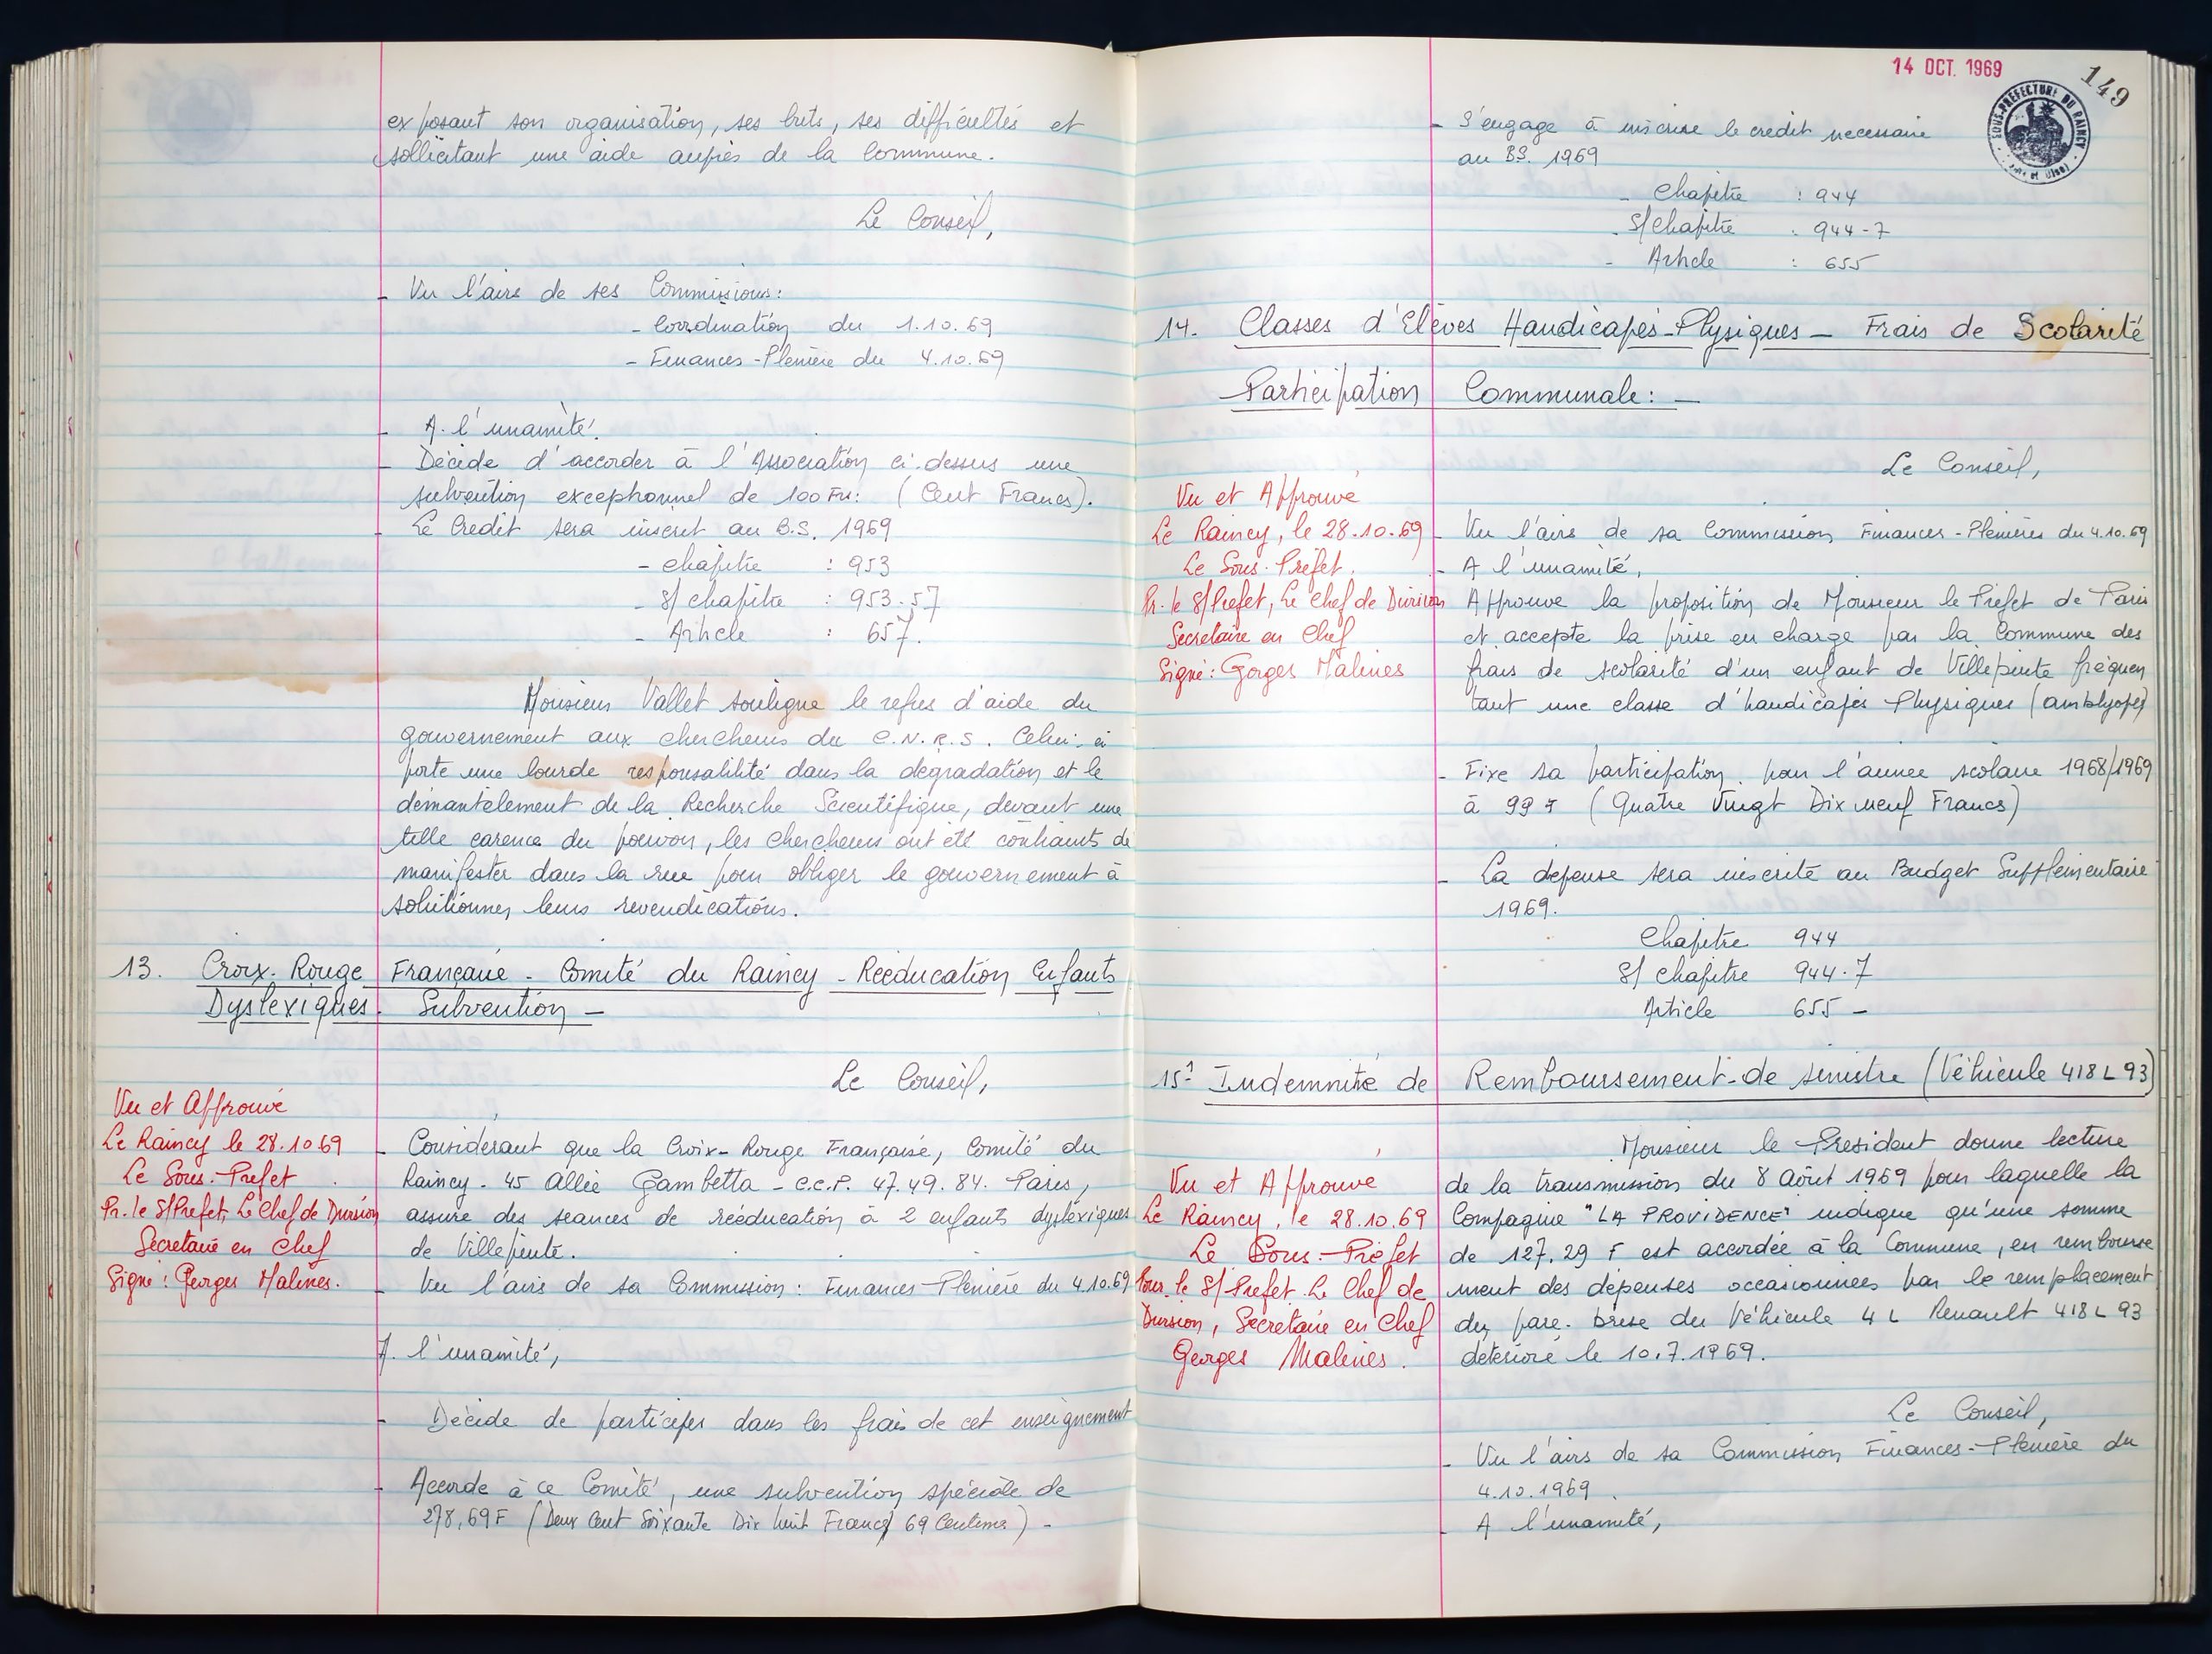 exposant son organisation, ses buts, ses difficultés et
sollicitant une aide auprès de la Commune.
Le Conseil,
- Vu l'avis de ses Commissions:
- Coordination du 1.10.69
- Finances-Plénière du 4.10.69
- A l'unamité.
- Décide d'accorder à l'Association ci-dessus une
subvention exceptionnel de 100 Frs: (Cent Francs).
- Le Crédit sera inscrit au B.S. 1969
- chapitre : 953
- S/chapitre : 953.57
- Article : 657.
Monsieur Vallet souligne le refus d'aide du
gouvernement aux chercheurs du C.N.R.S. Celui-ci
porte une lourde responsabilité dans la dégradation et le
démantèlement de la Recherche Scientifique, devant une
telle carence du pouvoir, les chercheurs ont été contraints de
manifester dans la rue pour obliger le gouvernement à
solutionner leurs revendications.
13. Croix-Rouge Française - Comité du Raincy - Rééducation Enfants
Dyslexiques. Subvention -
Le Conseil,
Vu et Approuvé
Le Raincy le 28.10.69
Le Sous-Préfet
Pr. le S/Préfet, Le Chef de Division
Secrétaire en Chef
Signé : Georges Malines.
- Considérant que la Croix-Rouge Française, Comité du
Raincy - 45 Allée Gambetta - C.C.P. 47.49.84. Paris,
assure des séances de rééducation à 2 enfants dyslexiques
de Villepinte.
- Vu l'avis de sa Commission : Finances-Plénière du 4.10.69
A. l'unamité,
- Décide de participer dans les frais de cet enseignement
- Accorde à ce Comité, une subvention spéciale de
278,69F (Deux Cent Soixante Dix huit Francs 69 Centimes) -
14 OCT. 1969
149
SOUS-PRÉFECTURE DU RAINCY
- S'engage à inscrire le crédit nécessaire
au B.S. 1969
- Chapitre : 944
- S/Chapitre : 944-7
- Article : 655
14. Classes d'Elèves Handicapés-Physiques - Frais de Scolarité
Participation Communale: -
Le Conseil,
Vu et Approuvé
Le Raincy, le 28.10.69
Le Sous-Préfet.
Pr. le S/Préfet, Le Chef de Division
Secrétaire en Chef
Signé : Gorges Malines
- Vu l'avis de sa Commission Finances-Plénières du 4.10.69
- A l'unamité,
Approuve la proposition de Monsieur le Préfet de Paris
et accepte la prise en charge par la Commune des
frais de scolarité d'un enfant de Villepinte fréquen
tant une classe d'handicapés Physiques (amblyopes)
- Fixe sa participation pour l'année scolaire 1968/1969
à 99 F (Quatre Vingt Dix neuf Francs)
- La dépense sera inscrite au Budget Supplémentaire
1969.
Chapitre 944
S/ chapitre 944.7
Article 655 -
15- Indemnité de Remboursement-de sinistre (Véhicule 418 L 93)
Vu et Approuvé
Le Raincy, le 28.10.69
Le Sous-Préfet
Pour le S/Préfet. Le Chef de
Division, Secrétaire en Chef
Georges Malines.
Monsieur le Président donne lecture
de la transmission du 8 Août 1969 pour laquelle la
Compagnie "LA PROVIDENCE" indique qu'une somme
de 127,29 F est accordée à la Commune, en rembourse
ment des dépenses occasionnées par le remplacement
du pare-brise du Véhicule 4 L Renault 418 L 93
détérioré le 10.7.1969.
Le Conseil,
- Vu l'avis de sa Commission Finances-Plénière du
4.10.1969
- A l'unamité,